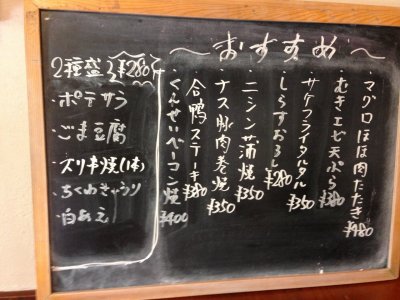 〜おすすめ〜
・マグロほほ肉たたき ¥480
・むきエビ天ぷら ¥380
・サケフライタルタル ¥350
・しらすおろし ¥280
・ニシン蒲焼 ¥350
・ナス豚肉巻焼 ¥350
・合鴨ステーキ ¥380
・くんせいベーコン焼 ¥400
2種盛 ¥280
・ポテサラ
・ごま豆腐
・ズリ串焼(1本)
・ちくわきゅうり
・白あえ